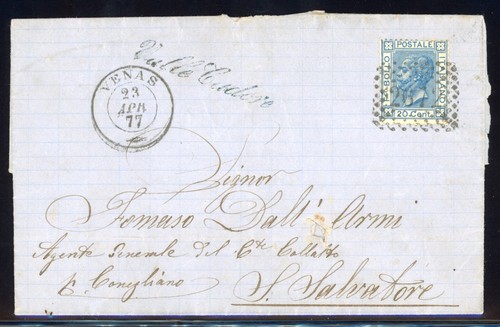 Valle Cadore
VENAS
23
APR
77
BOLLO POSTALE ITALIANO
20 Cent
Signor
Tomaso Dall' Armi
Agente Generale del Cte Collalto
p. Conegliano
S. Salvatore